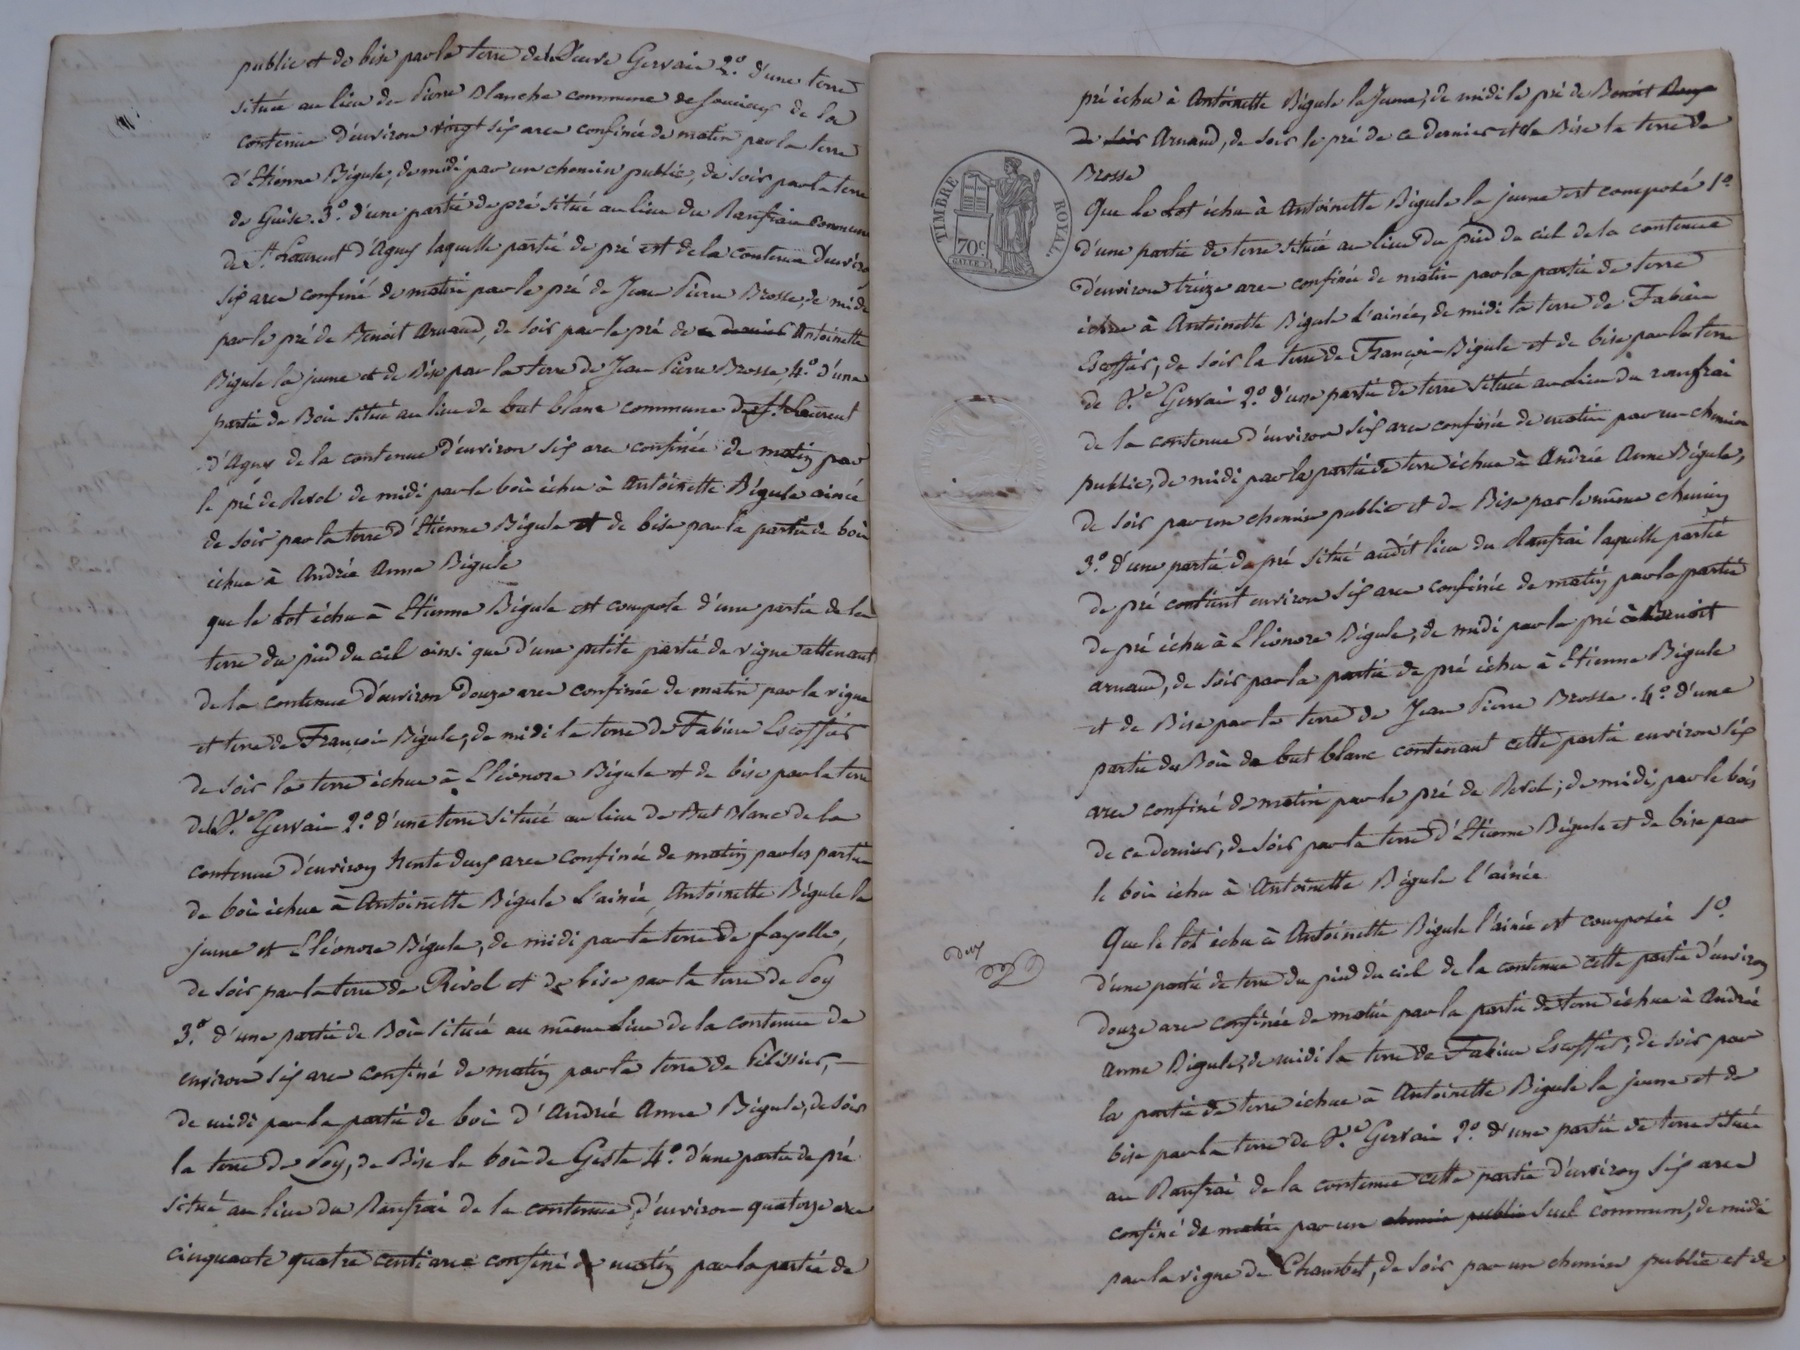 public et de bise par la terre de la Veuve Gervais 2.° d'une terre
située au lieu de Pierre Blanche commune de Soucieux de la
contenue d'environ vingt six ares confinée de matin par la terre
d'Etienne Bigule, de midi par un chemin public, de soir par la terre
de Guise. 3.° d'une partie de pré situé au lieu du Ranfrai commune
de S.t Laurent d'Agny laquelle partie de pré est de la contenue d'environ
six ares confiné de matin par le pré de Jean Pierre Brosse, de midi
par le pré de Benoit Arnaud, de soir par le pré de ce dernier Antoinette
Bigule la jeune et de Bise par la terre de Jean Pierre Brosse, 4.° d'une
partie de Bois situé au lieu de but blanc commune de St Laurent
d'Agny de la contenue d'environ six ares confinée de matin par
le pré de Revol de midi par le bois échu à Antoinette Bigule ainée
de soir par la terre d'Etienne Bigule et de bise par la partie de bois
échue à Andrée Anne Bigule
que le lot échu à Etienne Bigule est composé d'une partie de la
terre du pied du ciel ainsi que d'une petite partie de vigne attenant
de la contenue d'environ douze ares confinée de matin par la vigne
et terre de François Bigule, de midi la terre de Fabien Escoffier
de soir la terre échue à Eléonore Bigule et de bise par la terre
de la V.e Gervais 2.° d'une terre située au lieu de But Blanc de la
contenue d'environ trente deux ares confinée de matin par les parties
de bois échues à Antoinette Bigule l'ainée, Antoinette Bigule la
jeune et Eléonore Bigule, de midi par la terre de fayolle,
de soir par la terre de Rivol et de bise par la terre de Poy
3.° d'une partie de Bois située au même lieu de la contenue de
environ six ares confiné de matin par la terre de Pélissier,
de midi par la partie de bois d'Andrée Anne Bigule, de soir
la terre de Poy, de Bise le bois de Geste 4.° d'une partie de pré
situé au lieu du Ranfrai de la contenue d'environ quatorze ares
cinquante quatre centiares confiné de matin par la partie de
pré échu à Antoinette Bigule la Jeune, de midi le pré de Benoit
de soir Arnaud, de soir le pré de ce dernier et de Bise la terre de
Brosse
TIMBRE ROYAL.
70.c
Que le Lot échu à Antoinette Bigule la jeune est composé 1.°
d'une partie de terre située au lieu du pied du ciel de la contenue
d'environ treize ares confinée de matin par la partie de terre
échue à Antoinette Bigule l'ainée, de midi la terre de Fabien
Escoffier, de soir la terre de François Bigule et de bise par la terre
de V.e Gervais 2.° d'une partie de terre située au lieu du ranfrai
de la contenue d'environ six ares confinée de matin par un chemin
public, de midi par la partie de terre échue à Andrée Anne Bigule,
de soir par un chemin public et de Bise par le même chemin
3.° d'une partie de pré situé audit lieu du Ranfrai laquelle partie
de pré contient environ six ares confinée de matin par la partie
de pré échu à Eléonore Bigule, de midi par le pré à Benoit
arnaud, de soir par la partie de pré échu à Etienne Bigule
et de Bise par la terre de Jean Pierre Brosse. 4.° d'une
partie du Bois de but blanc contenant cette partie environ six
ares confiné de matin par le pré de Revol; de midi, par le bois
de ce dernier, de soir par la terre d'Etienne Bigule et de bise par
le bois échu à Antoinette Bigule l'ainée.
Que le lot échu à Antoinette Bigule l'ainée est composée 1.°
d'une partie de terre du pied du ciel de la contenue cette partie d'environ
deux
douze ares confinée de matin par la partie de terre échue à Andrée
Anne Bigule, de midi la terre de Fabien Escoffier, de soir par
la partie de terre échue à Antoinette Bigule la jeune et de
bise par la terre de V.e Gervais 2.° d'une partie de terre située
au Ranfrai de la contenue cette partie d'environ six ares
confiné de matin par un chemin public suel commun, de midi
par la vigne de Chambet, de soir par un chemin public et de